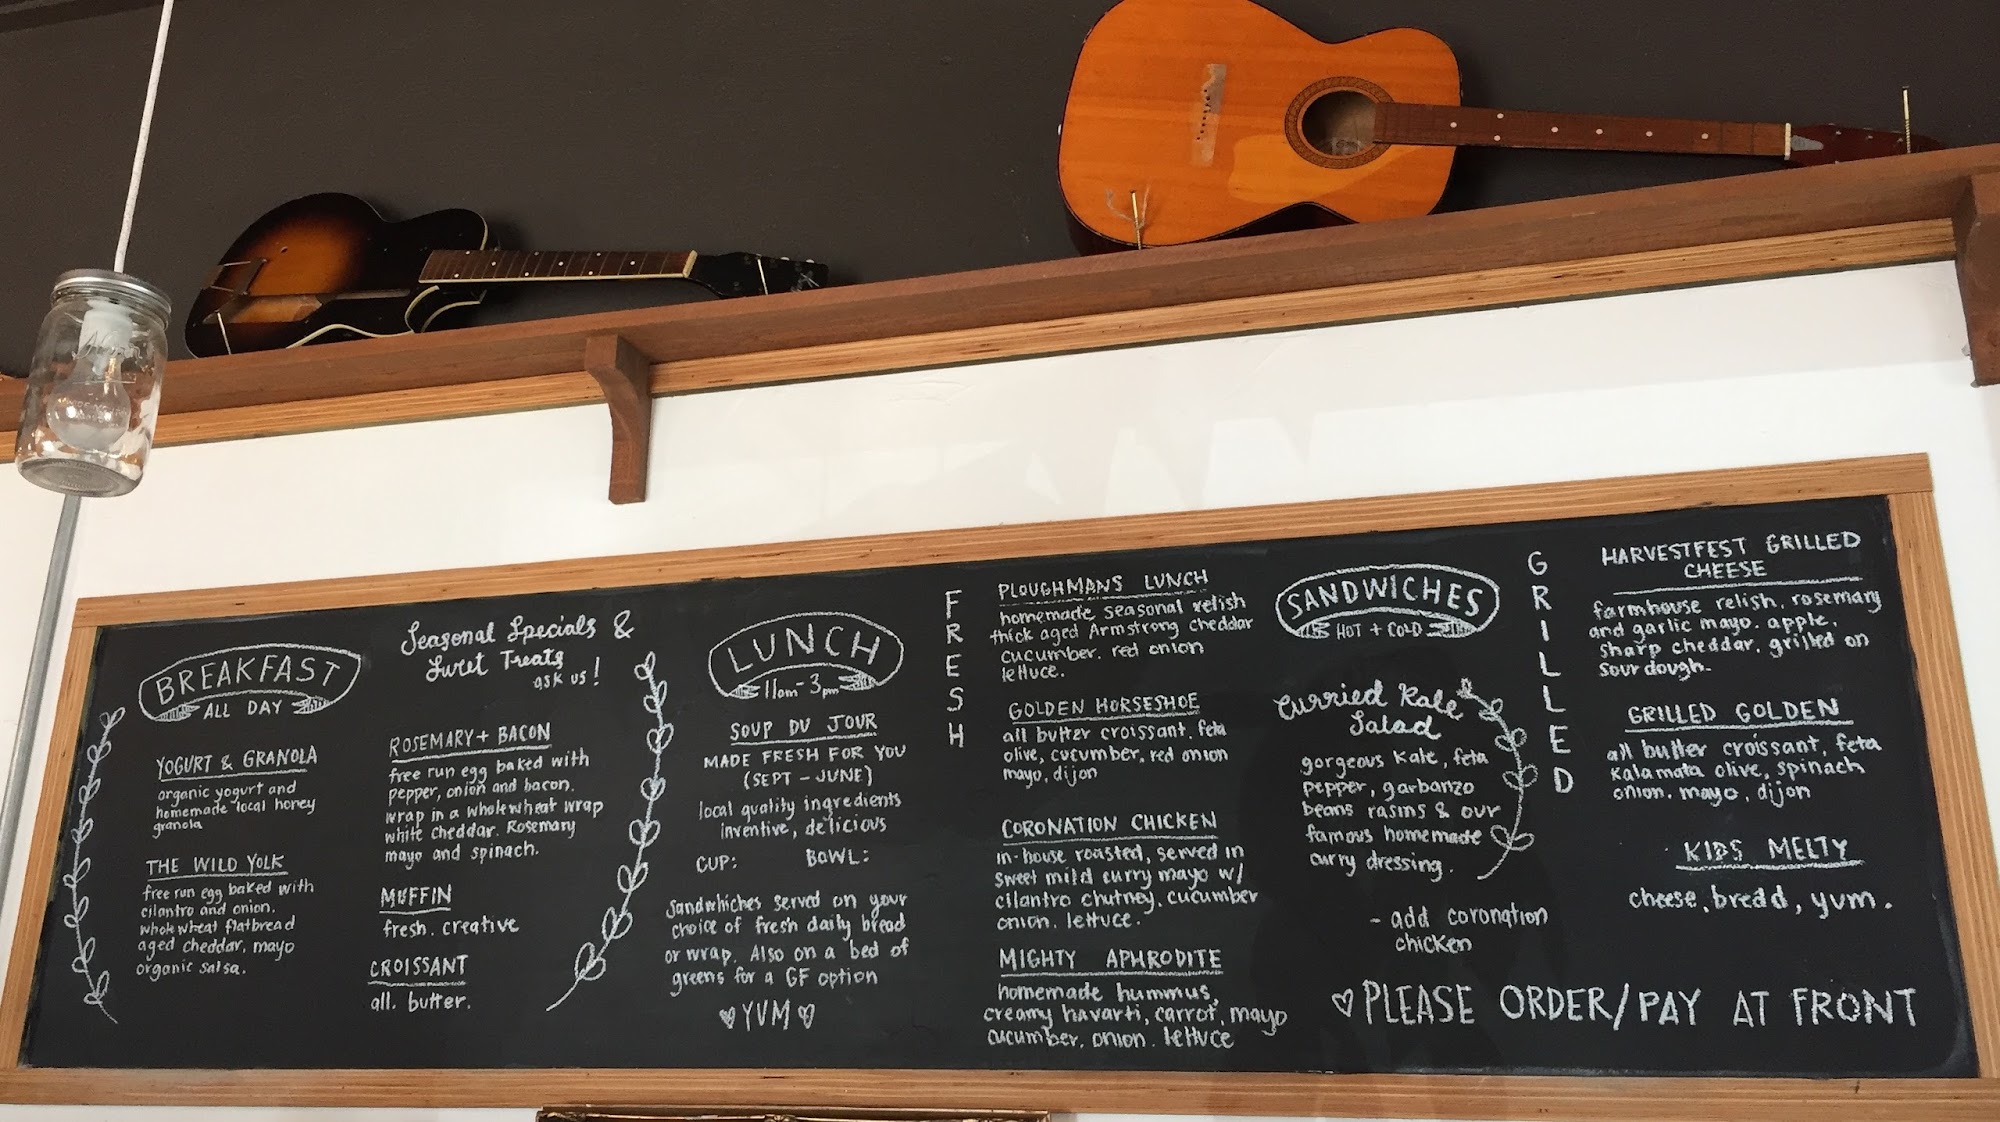 BREAKFAST
ALL DAY
YOGURT & GRANOLA
organic yogurt and
homemade local honey
granola
THE WILD YOLK
free run egg baked with
cilantro and onion.
whole wheat flatbread
aged cheddar, mayo
organic salsa.
Seasonal Specials &
Sweet Treats
ask us!
ROSEMARY + BACON
free run egg baked with
pepper, onion and bacon.
wrap in a whole wheat wrap
white cheddar. Rosemary
mayo and spinach.
MUFFIN
fresh. creative
CROISSANT
all. butter.
LUNCH
11am - 3pm
SOUP DU JOUR
MADE FRESH FOR YOU
(SEPT - JUNE)
local quality ingredients
inventive, delicious
CUP: BOWL:
Sandwhiches served on your
choice of fresh daily bread
or wrap. Also on a bed of
greens for a GF option
YUM
FRESH
PLOUGHMANS LUNCH
homemade seasonal relish
thick aged Armstrong cheddar
cucumber. red onion
lettuce.
GOLDEN HORSESHOE
all butter croissant, feta
olive, cucumber, red onion
mayo, dijon
CORONATION CHICKEN
in-house roasted, served in
sweet mild curry mayo w/
cilantro chutney, cucumber
onion. lettuce.
MIGHTY APHRODITE
homemade hummus,
creamy havarti, carrot, mayo
cucumber, onion. lettuce
SANDWICHES
HOT + COLD
Curried Kale
Salad
gorgeous kale, feta
pepper, garbanzo
beans rasins & our
famous homemade
curry dressing.
- add coronation
chicken
GRILLED
HARVESTFEST GRILLED
CHEESE
farmhouse relish, rosemary
and garlic mayo. apple.
sharp cheddar, grilled on
sourdough.
GRILLED GOLDEN
all butter croissant, feta
kalamata olive, spinach
onion. mayo, dijon
KIDS MELTY
cheese, bread, yum.
PLEASE ORDER/PAY AT FRONT